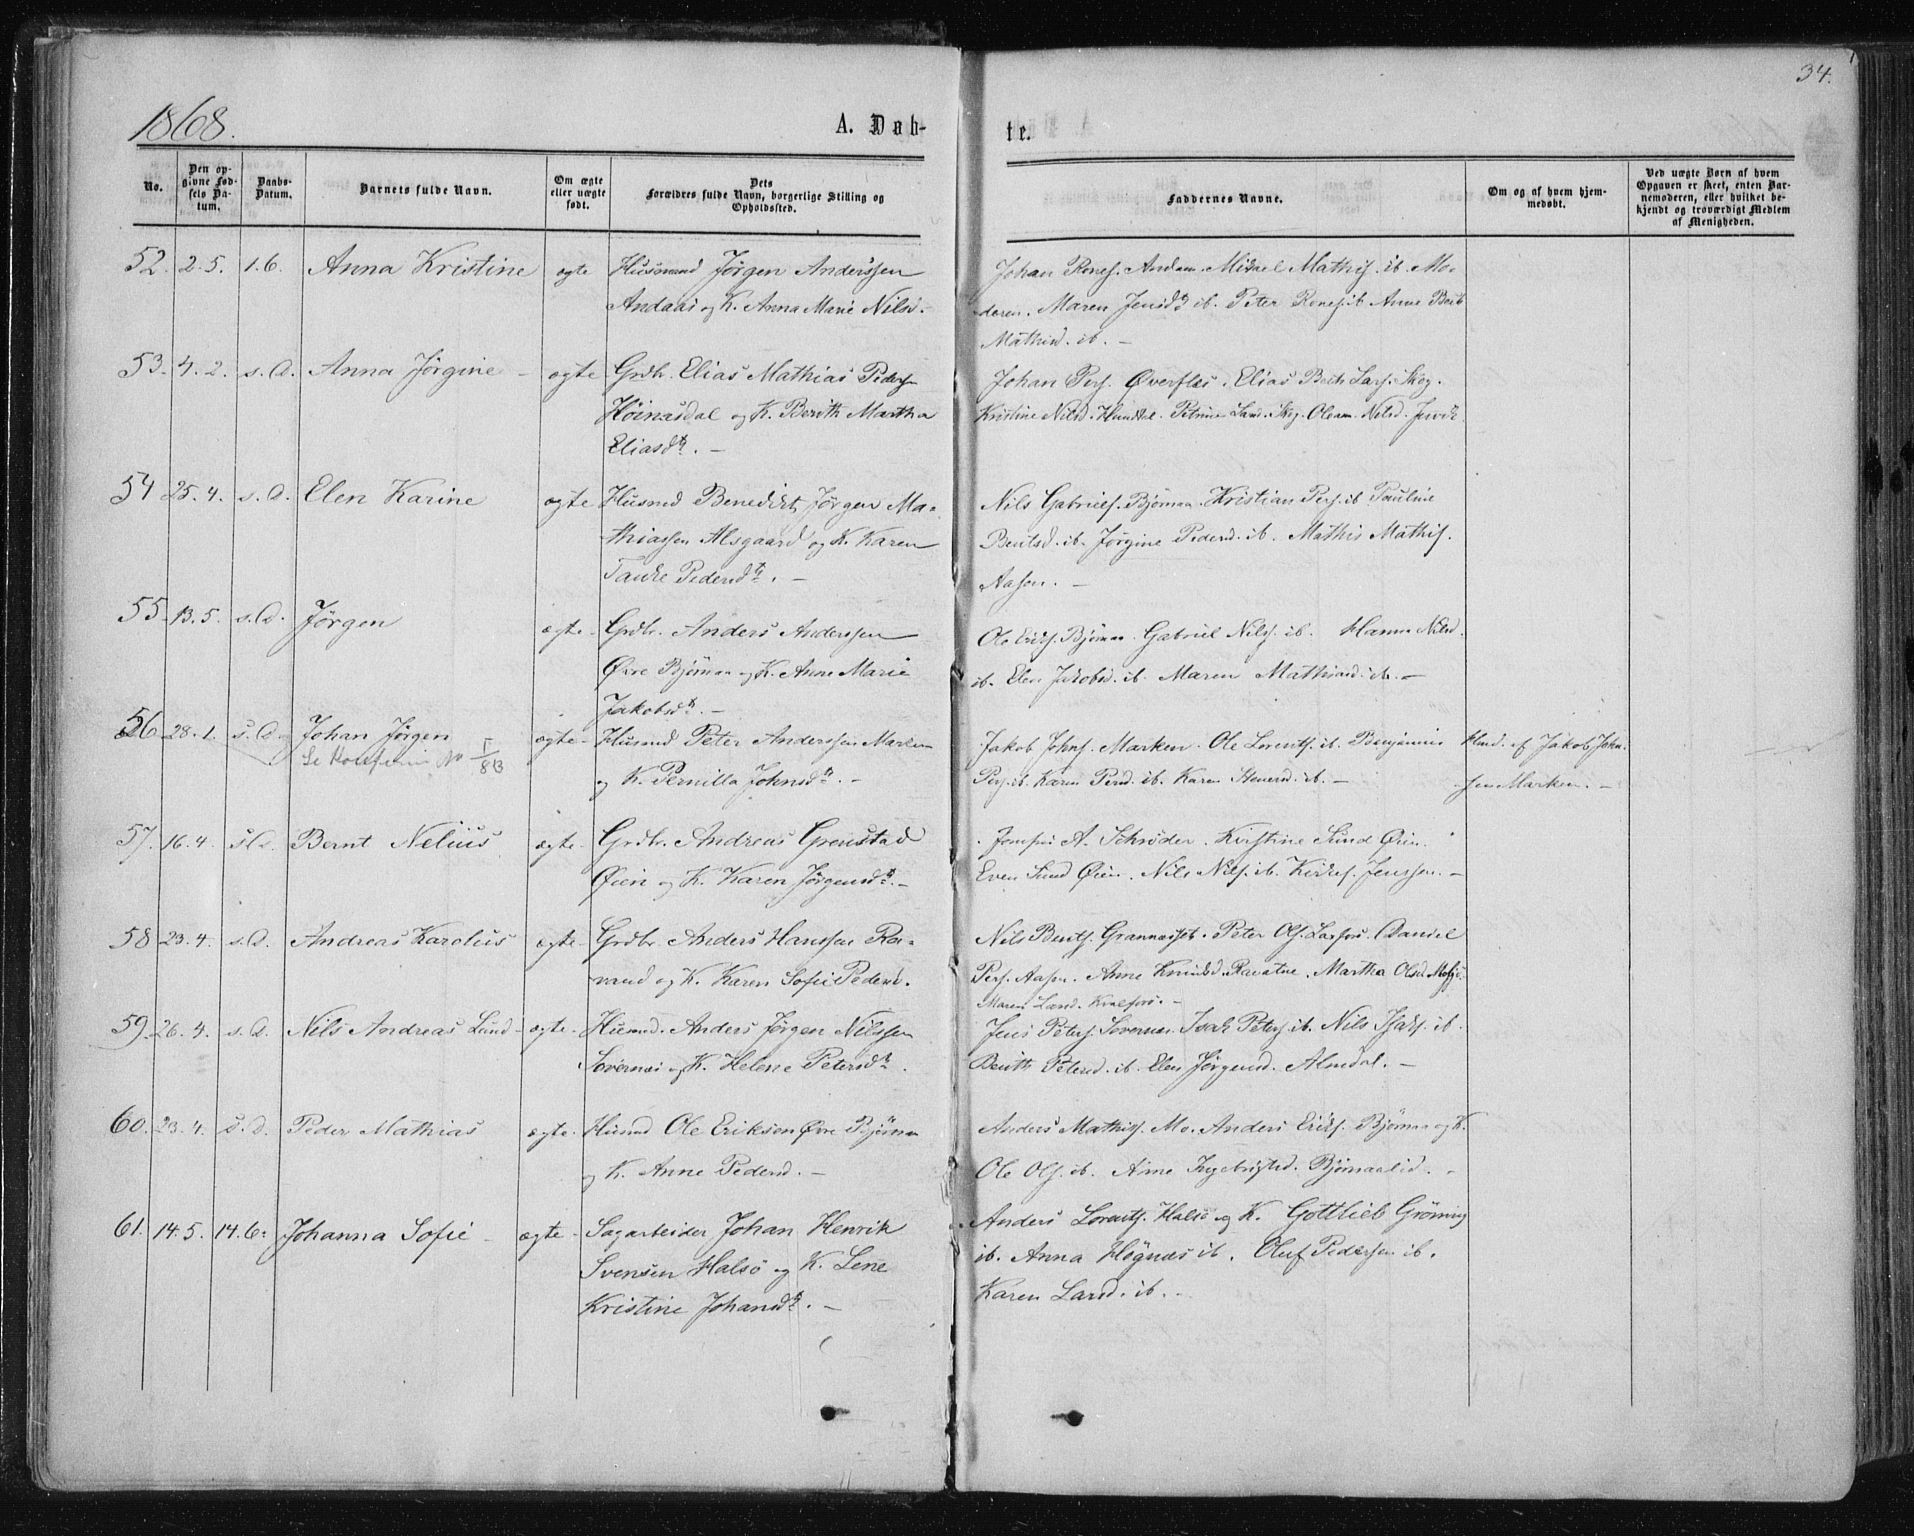 1868.
A. Døb-
te.
34.
No.
Den op-
givne Fød-
sels Da-
tum.
Daabs-
Datum.
Barnets fulde Navn.
Om ægte
eller uægte
født.
Dets
Forældres fulde Navn, borgerlige Stilling og
Opholdssted.
Faddernes Navne.
Om og af hvem hjem-
medøbt.
Ved uægte Børn af hvem
Opgaven er skeet, enten Bar-
nemoderen, eller hvilket be-
kjendt og troværdigt Medlem
af Menigheden.
52. 2.5. 1.6. Anna Kristine ægte Husmand Jørgen Anderssen
Andaas og K. Anna Marie Nilsd.
Johan Rones. Andaas. Mikael Mathis. ib. Mo-
deren. Maren Jensd. ib. Peter Rones. ib. Anne Berit
Mathisd. ib. -
53. 4.2. s.D. Anna Jørgine - ægte Grdbr. Elias Mathias Peders.
Høinæsdal og K. Berith Martha
Eliasdtr. -
Johan Pers. Øverflæs. Elias Lars. Skog.
Kristine Nilsd. Petrine Larsd. Skog. Nilsd.
54 25.4. s.D. Elen Karine ægte Husmd Benedikt Jørgen Ma-
thiassen Alsgaard og K. Karen
Pedersdtr. -
Nils Gabriels. Bjørnaa. Kristian Pers. ib. Pauline
Bentsd. ib. Jørgine Pedersd. ib. Mathis Mathis.
Aasen. -
55 13.5. s.D. Jørgen ægte. Grdbr. Anders Anderssen
Øvre Bjørnaa og K. Anne Marie
Jakobsdtr. -
Ole Eriks. Bjørnaa. Gabriel Nils. ib. Hanna Nilsd.
ib. Elen Jakobsd. ib. Maren Mathisd. ib. -
56 28.1. s.D. Johan Jørgen ægte. Husmd Peter Anderssen Marken
og K. Pernilla Johnsdtr. -
Jakob Johns. Marken. Ole Lorents. ib. Benjamin
Pers. ib. Karen Persd. ib. Karen ib. -
Hmd. af Jakob John-
sen Marken. -
57. 16.4. s.D. Bernt Nelius ægte. Grdbr. Andreas Grønstad
Øien og K. Karen Jørgensdtr. -
A. Schrøder. Kirstine Sund Øien.
Even Sund Øien. Nils Nils. ib. Jenssen. -
58 23.4. s.D. Andreas Karolius ægte. Grdbr. Anders Hanssen Ra-
vand og K. Karen Sofie Pedersd.
Nils Bents. Grannæsset. Peter Ols. Laxfors. Daniel
Pers. Aasen. Anne Knudsd. Ravatne. Martha Olsd.
Maren Larsd. Kvalfors. -
59. 26.4. s.D. Nils Andreas Lund - ægte. Husmd. Anders Jørgen Nilssen
Søvernæs og K. Helene Petersdtr.
Jens Peters. Søvernæs. Isak Peters. ib. Nils Isaks. ib.
Berith Petersd. ib. Elen Jørgensd. Almdal. -
60. 23.4. s.D. Peder Mathias ægte. Husmd Ole Eriksen Øvre Bjørnaa
og K. Anne Pedersd. -
Anders Mathis. Mo. Anders Eriks. Bjørnaa og K.
Ole Ols. ib. Anne Ingebrigtsd. Bjørnaalid. -
61. 14.5. 14.6. Johanna Sofie - ægte - Sagarbeider Johan Henrik
Svensen Halsø og K. Lene
Kristine Johansdtr. -
Anders Lorents. Halsø og K. Gottlieb Grøning
ib. Anna Høgnæs ib. Oluf Pedersen ib.
Karen Larsd. ib. -